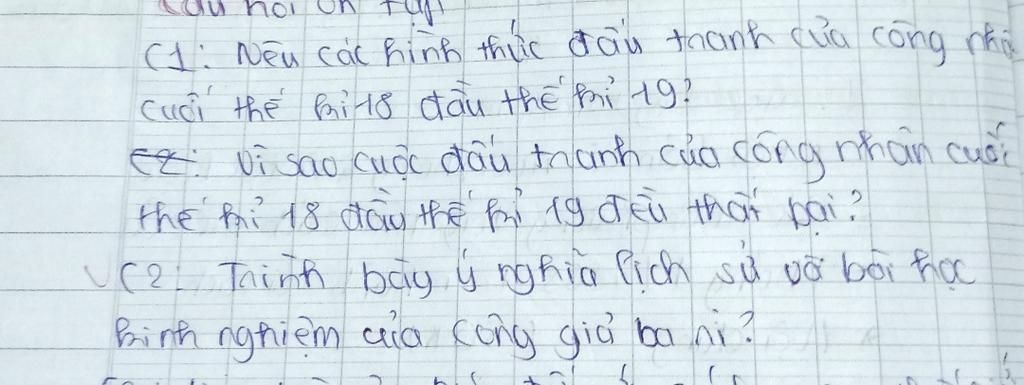 câu hỏi ôn tập
C1: Nêu các hình thức đấu tranh của công nhân
cuối thế kỉ 18 đầu thế kỉ 19?
C2: Vì sao cuộc đấu tranh của công nhân cuối
thế kỉ 18 đầu thế kỉ 19 đều thất bại?
C2: Trình bày ý nghĩa lịch sử và bài học
kinh nghiệm của công giả ba ni?